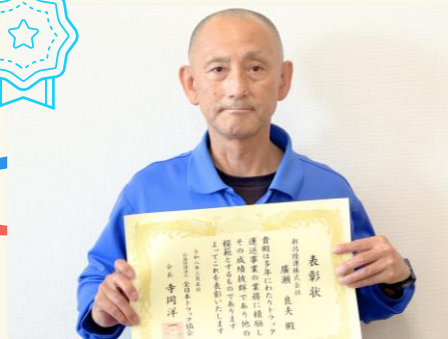 表彰状
新潟陸運株式会社
廣瀬 良夫 殿
貴殿は多年にわたりトラック
運送事業の業務に精励し
その成績抜群であり他の
模範とするものであります
よってこれを表彰いたします
令和八年三月五日
公益社団法人 全日本トラック協会
会長 寺岡洋一